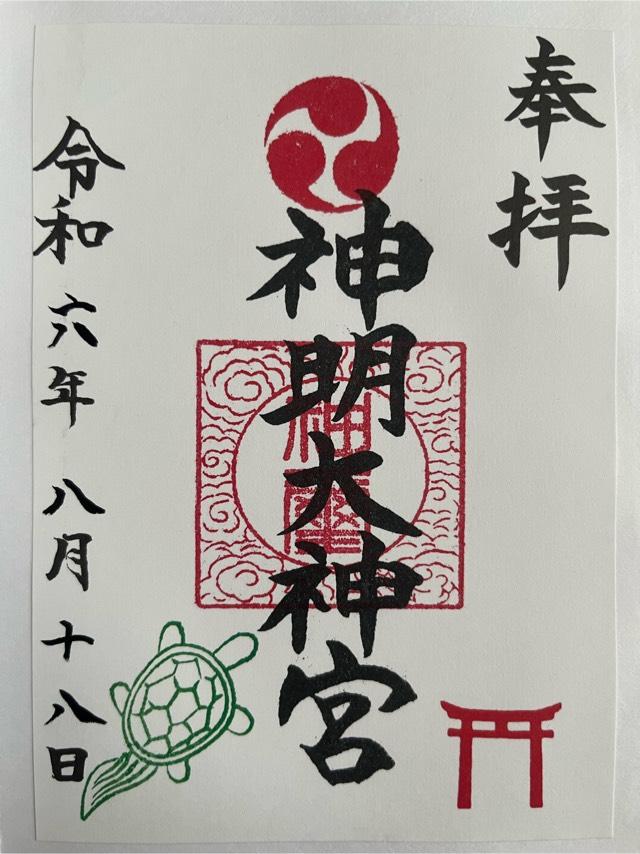 奉拝
神明大神宮
神璽
令和六年八月十八日